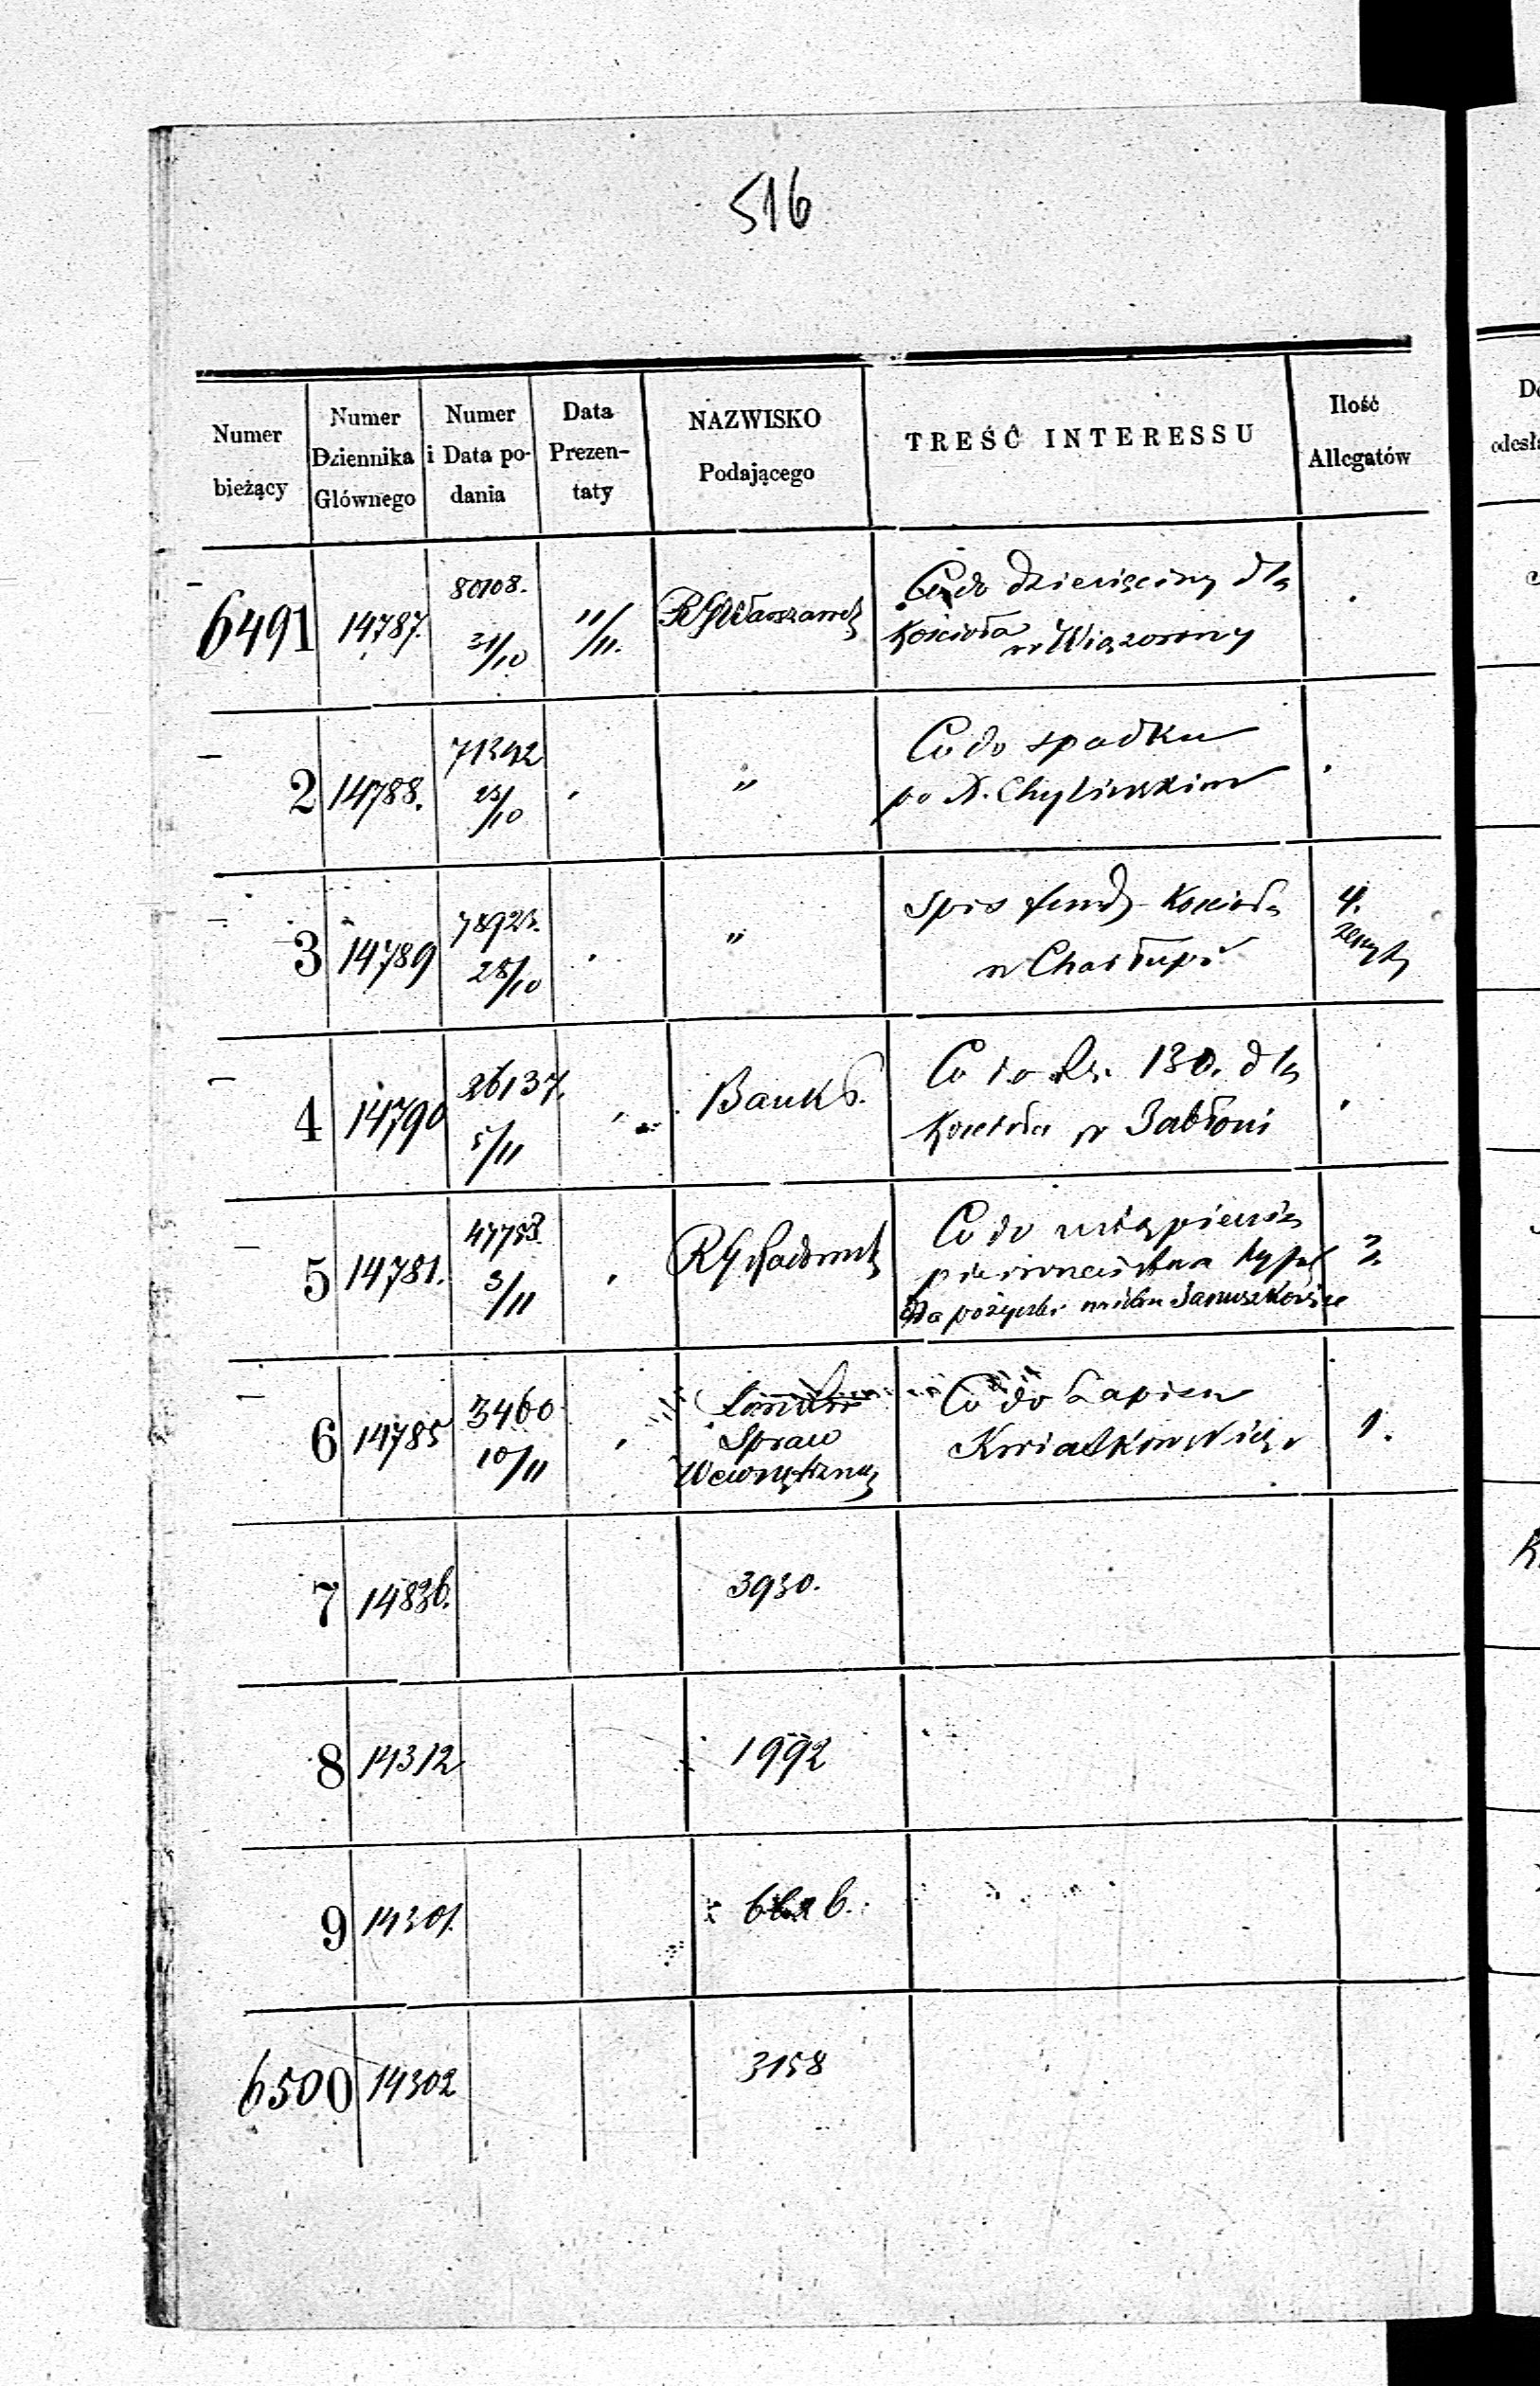 516
Numer bieżący
Numer Dziennika Głównego
Numer i Data podania
Data Prezentaty
NAZWISKO Podającego
TREŚĆ INTERESSU
Ilość Allegatów
6491 14787. 80108. 31/10 11/11. RGWarszawsk Co do dziesięciny dla
Kościoła w Wiązowny
2 14788. 71342 25/10 " Co do spadku
po X. Chylińskim
3 14789 78923. 28/10 " Spis fund. Kościoła 4.
w Charłupi zeszyt
4 14790 26137. 5/11 " Bank P. Co do Rs. 130. dla
Kościoła w Jabłoni
5 14781. 47753 3/11 RGRadomsk Co do ustąpienia 2.
pierwszeństwa
dla pożyczki Januszkowice
6 14785 3460 10/11 Co do zapisu 1.
Spraw Kwiatkowskiego
Wewnętrznych
7 14836. 3930.
8 14312 1992
9 14301.
6500 14302 3158